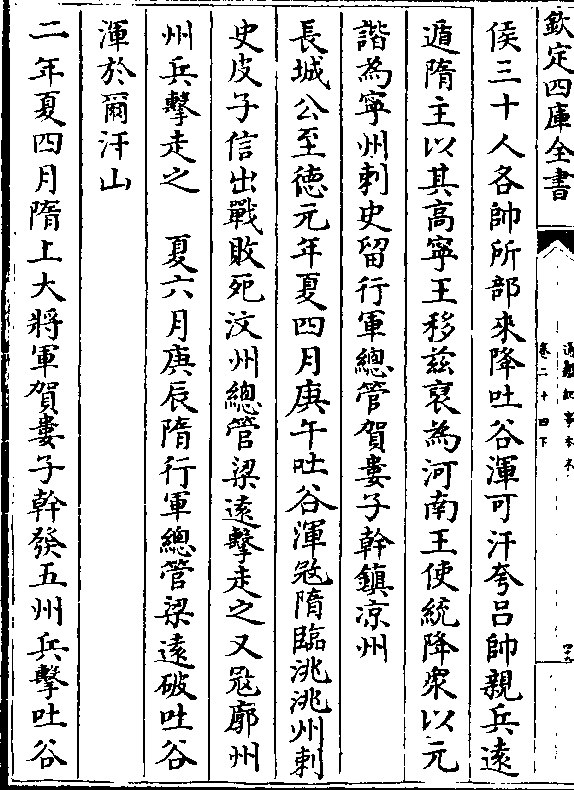 欽定四庫全書
通鑑紀事本末
卷二十四下
侯三十人各帥所部來降吐谷渾可汗夸吕帥親兵遠
遁隋主以其高寧王移兹裒為河南王使統降衆以元
諧為寧州刺史留行軍總管賀婁子幹鎮涼州
長城公至徳元年夏四月庚午吐谷渾宼隋臨洮洮州刺
史皮子信出戰敗死汶州總管梁遠擊走之又宼廓州
州兵擊走之　夏六月庚辰隋行軍總管梁遠破吐谷
渾於爾汗山
二年夏四月隋上大將軍賀婁子幹發五州兵擊吐谷